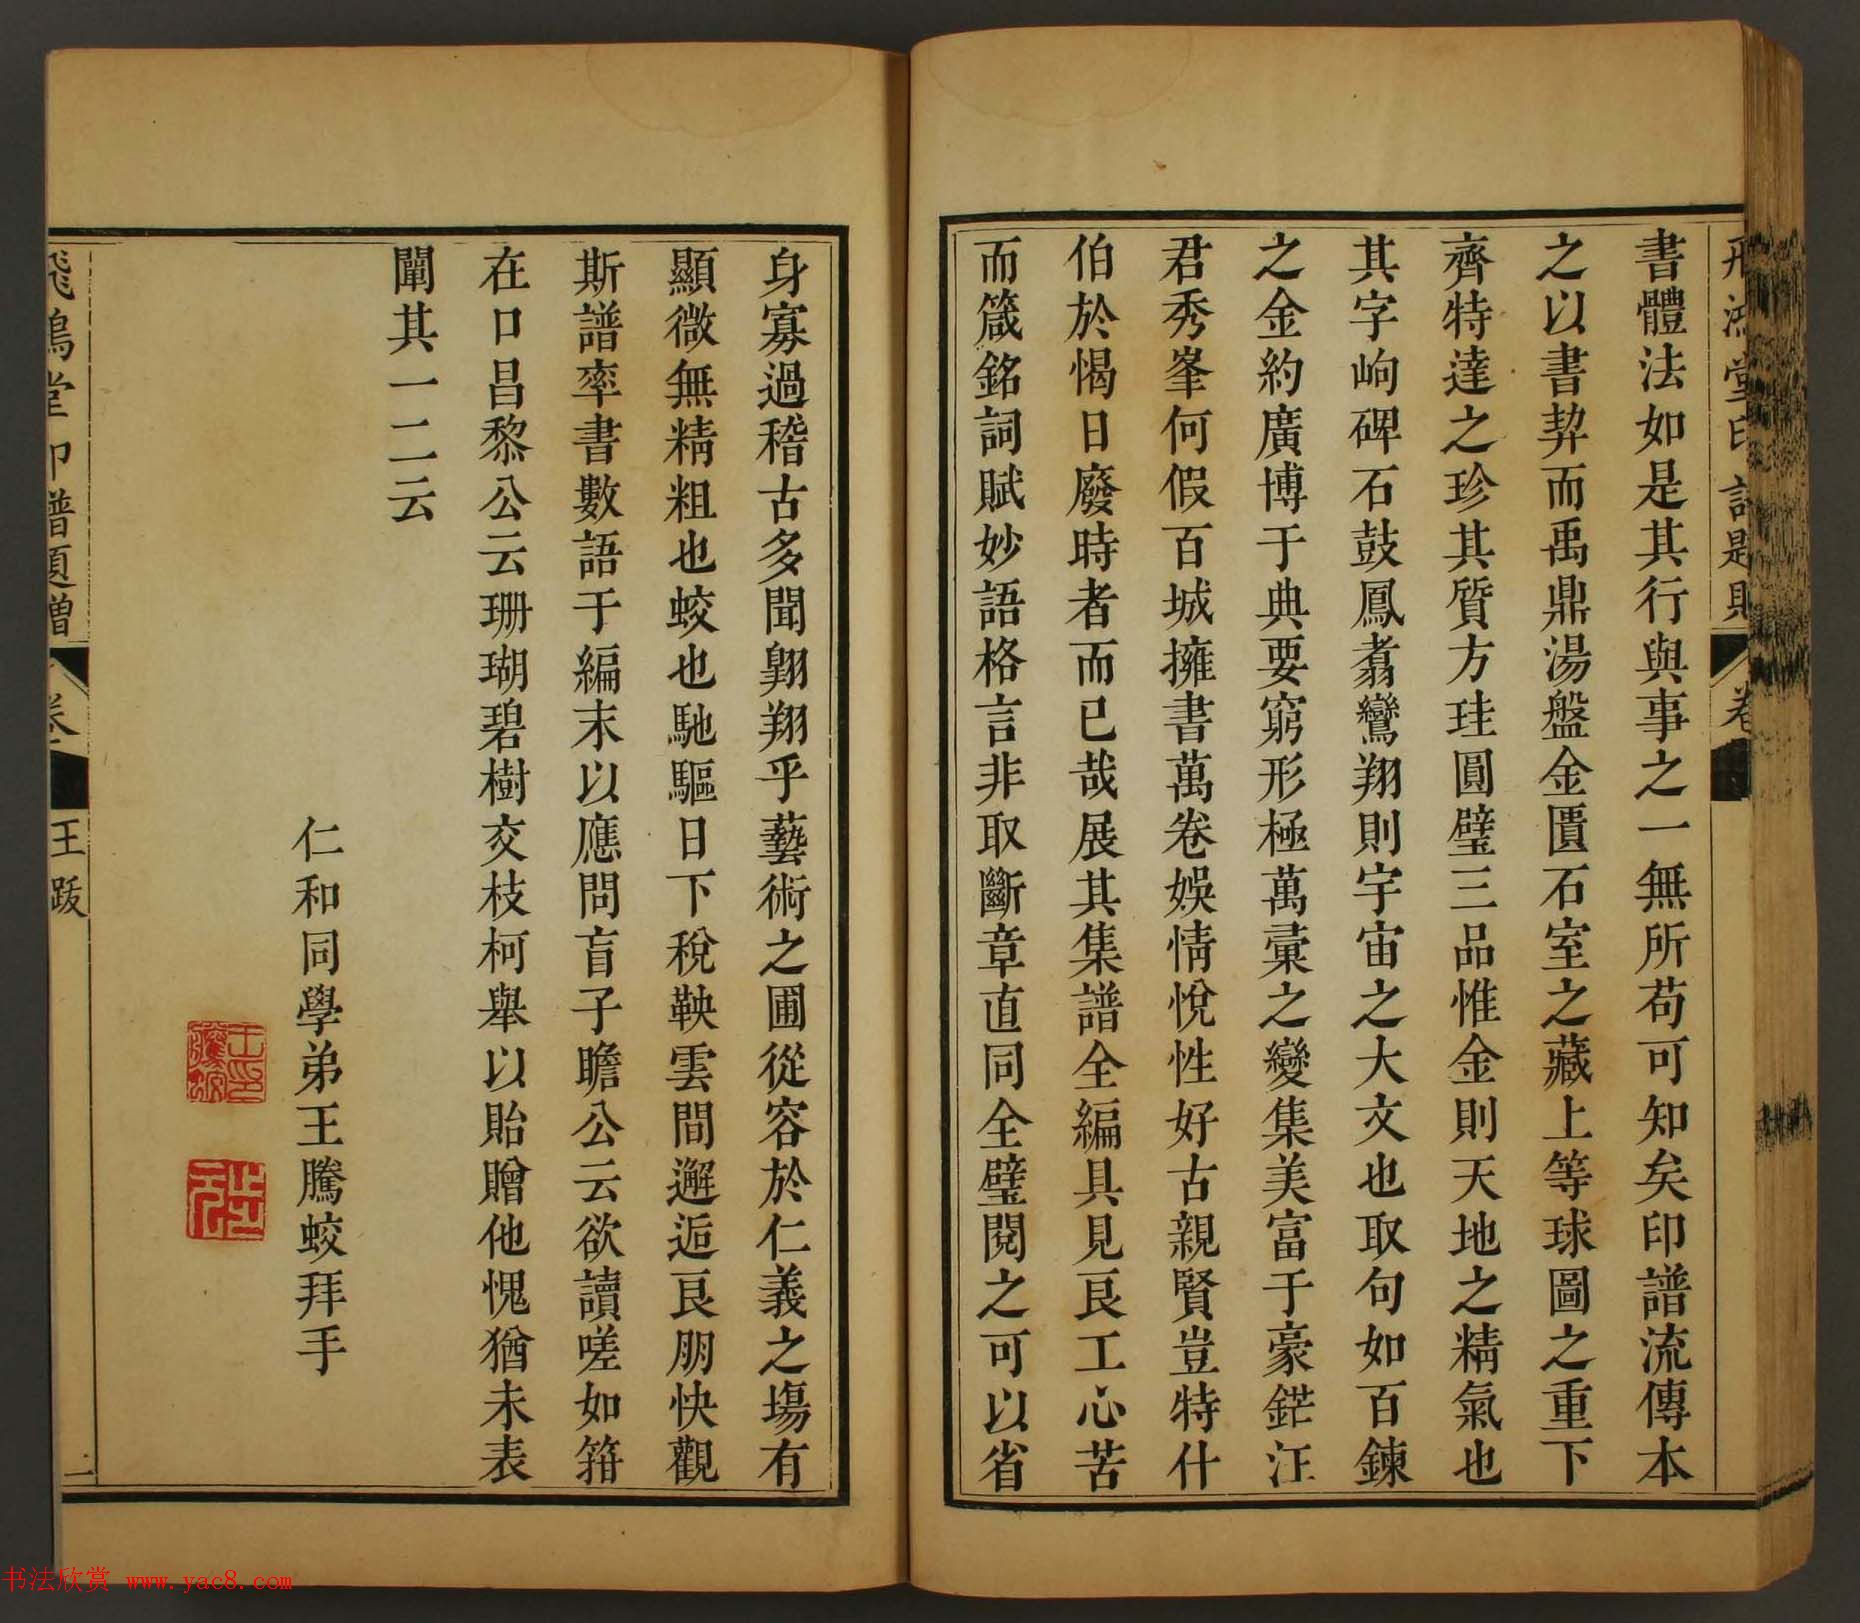 書體法如是其行與事之一無所苟可知矣印譜流傳本
之以書契而禹鼎湯盤金匱石室之藏上等球圖之重下
齊特達之珍其質方珪圓璧三品惟金則天地之精氣也
其字岣碑石鼓鳳翥鸞翔則宇宙之大文也取句如百鍊
之金約廣博于典要窮形極萬彙之變集美富于豪鋩汪
君秀峯何假百城擁書萬卷娛情悅性好古親賢豈特什
伯於愒日廢時者而已哉展其集譜全編具見良工心苦
而箴銘詞賦妙語格言非取斷章直同全璧閱之可以省
身寡過稽古多聞翺翔乎藝術之圃從容於仁義之塲有
顯微無精粗也蛟也馳驅日下稅鞅雲間邂逅良朋快觀
斯譜率書數語于編末以應問盲子瞻公云欲讀嗟如箝
在口昌黎公云珊瑚碧樹交枝柯舉以貽贈他愧猶未表
闡其一二云
仁和同學弟王騰蛟拜手
飛鴻堂印譜題贈
卷
王跋
二
书法欣赏 www.yac8.com